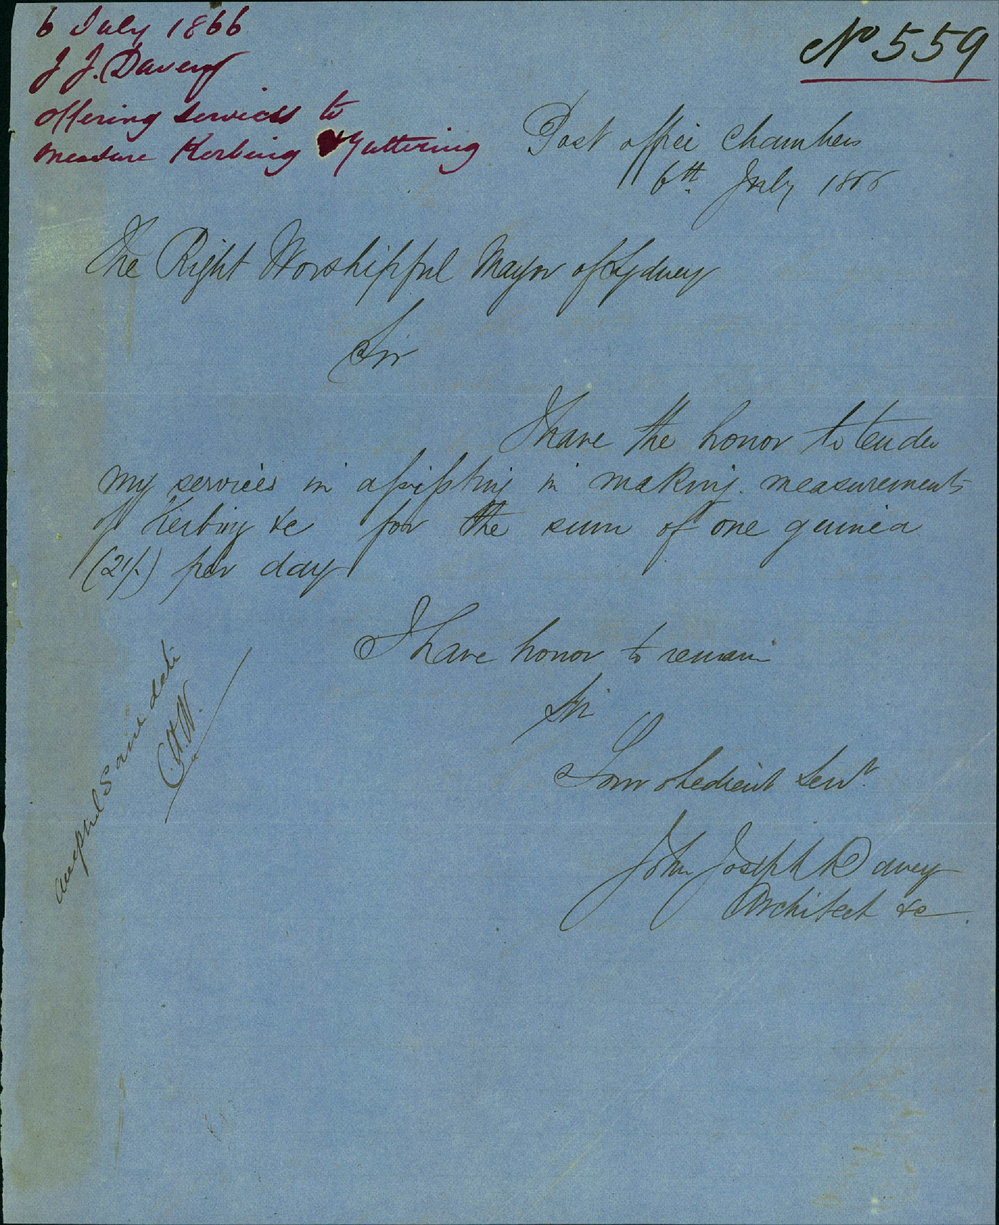 6 July 1866
J J. Davey
offering services to
measure Kerbing & Guttering
No 559
Post office Chambers
6th. July 1866
The Right Worshipful Mayor of Sydney
Sir
I have the honor to tender
my services in assisting in making measurements
of Kerbing &c for the sum of one guinea
(21/-) per day
I have honor to remain
Sir
Your obedient Servt
John Joseph Davey
Architect &c
same date
C.H.W.